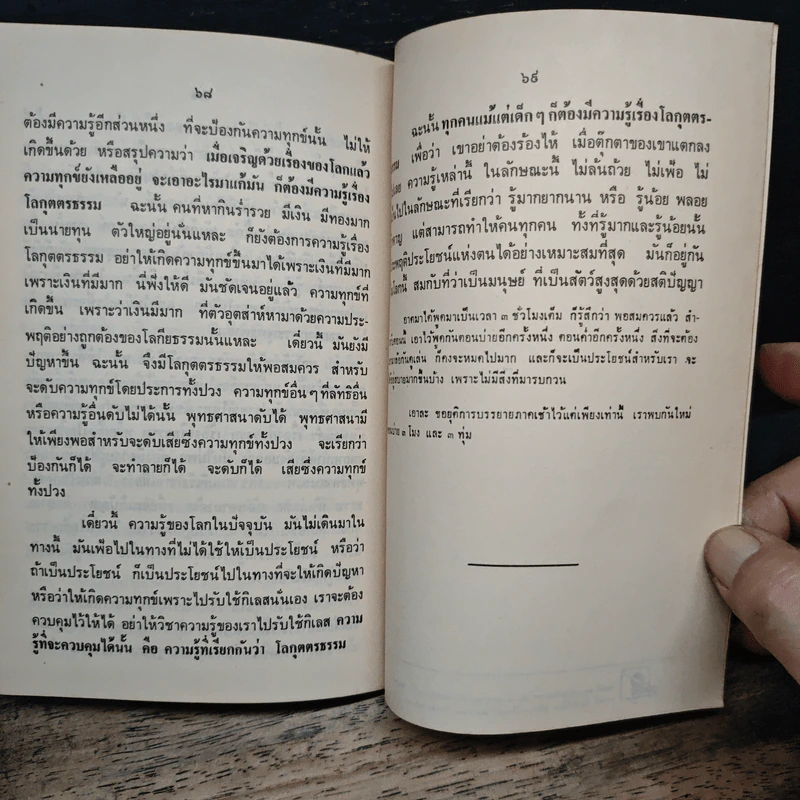 ๖๘
ต้องมีความรู้อีกส่วนหนึ่ง ที่จะป้องกันความทุกข์นั้น ไม่ให้
เกิดขึ้นด้วย หรือสรุปความว่า เมื่อเจริญด้วยเรื่องของโลกแล้ว
ความทุกข์ยังเหลืออยู่ จะเอาอะไรมาแก้มัน ก็ต้องมีความรู้เรื่อง
โลกุตตรธรรม ฉะนั้น คนที่หากินร่ำรวย มีเงิน มีทองมาก
เป็นนายทุน ตัวใหญ่อยู่นั่นแหละ ก็ยังต้องการความรู้เรื่อง
โลกุตตรธรรม อย่าให้เกิดทุกข์ขึ้นมาได้เพราะเงินที่มีมาก
เพราะเงินที่มีมาก นี่ฟังให้ดี มันชัดเจนอยู่แล้ว ความทุกข์ที่
เกิดขึ้น เพราะว่าเงินมีมาก ที่ตัวอุตส่าห์หามาด้วยความประ-
พฤติอย่างถูกต้องของโลกิยธรรมนั้นแหละ เดี๋ยวนี้ มันยังมี
ปัญหาขึ้น ฉะนั้น จึงมีโลกุตตรธรรมให้พอสมควร สำหรับ
จะดับความทุกข์โดยประการทั้งปวง ความทุกข์อื่น ๆ ที่ลัทธิอื่น
หรือความรู้อื่นดับไม่ได้นั้น พุทธศาสนาดับได้ พุทธศาสนามี
ให้เพียงพอสำหรับจะดับเสียซึ่งความทุกข์ทั้งปวง จะเรียกว่า
ป้องกันก็ได้ จะทำลายก็ได้ จะดับก็ได้ เสียซึ่งความทุกข์
ทั้งปวง
เดี๋ยวนี้ ความรู้ของโลกในปัจจุบัน มันไม่เดินมาใน
ทางนี้ มันเฟ้อไปในทางที่ไม่ได้ใช้ให้เป็นประโยชน์ หรือว่า
ถ้าเป็นประโยชน์ ก็เป็นประโยชน์ไปในทางที่จะให้เกิดปัญหา
หรือว่าให้เกิดความทุกข์เพราะไปรับใช้กิเลสนั่นเอง เราจะต้อง
ควบคุมไว้ให้ได้ อย่าให้วิชาความรู้ของเราไปรับใช้กิเลส ความ
รู้ที่จะควบคุมได้นั้น คือ ความรู้ที่เรียกกันว่า โลกุตตรธรรม
๖๙
ฉะนั้น ทุกคนแม้แต่เด็ก ๆ ก็ต้องมีความรู้เรื่องโลกุตตร-
เพื่อว่า เขาอย่าต้องร้องไห้ เมื่อตุ๊กตาของเขาแตกลง
ความรู้เหล่านี้ ในลักษณะนี้ ไม่ล้นถ้วย ไม่เฟ้อ ไม่
ไปในลักษณะที่เรียกว่า รู้มากยากนาน หรือ รู้น้อย พลอย
แต่สามารถทำให้คนทุกคน ทั้งที่รู้มากและรู้น้อยนั้น
ประโยชน์แห่งตนได้อย่างเหมาะสมที่สุด มันก็อยู่กัน
สมกับที่ว่าเป็นมนุษย์ ที่เป็นสัตว์สูงสุดด้วยสติปัญญา
อาตมาได้พูดมาเป็นเวลา ๓ ชั่วโมงเต็ม ก็รู้สึกว่า พอสมควรแล้ว สำ-
เอาไว้พูดกันตอนบ่ายอีกครั้งหนึ่ง ตอนค่ำอีกครั้งหนึ่ง สิ่งที่จะต้อง
ก็คงจะหมดไปมาก และก็จะเป็นประโยชน์สำหรับเรา จะ
มากขึ้นบ้าง เพราะไม่มีสิ่งที่มารบกวน
เอาละ ขอยุติการบรรยายภาคเช้าไว้แต่เพียงเท่านี้ เราพบกันใหม่
โมง และ ๓ ทุ่ม